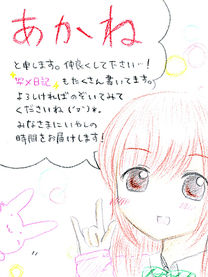 あかね
と申します。仲良くして下さい…!
写メ日記もたくさん書いてます。
よろしければのぞいてみて
くださいね(´▽`)*。
みなさまにいやしの
時間をお届けします!